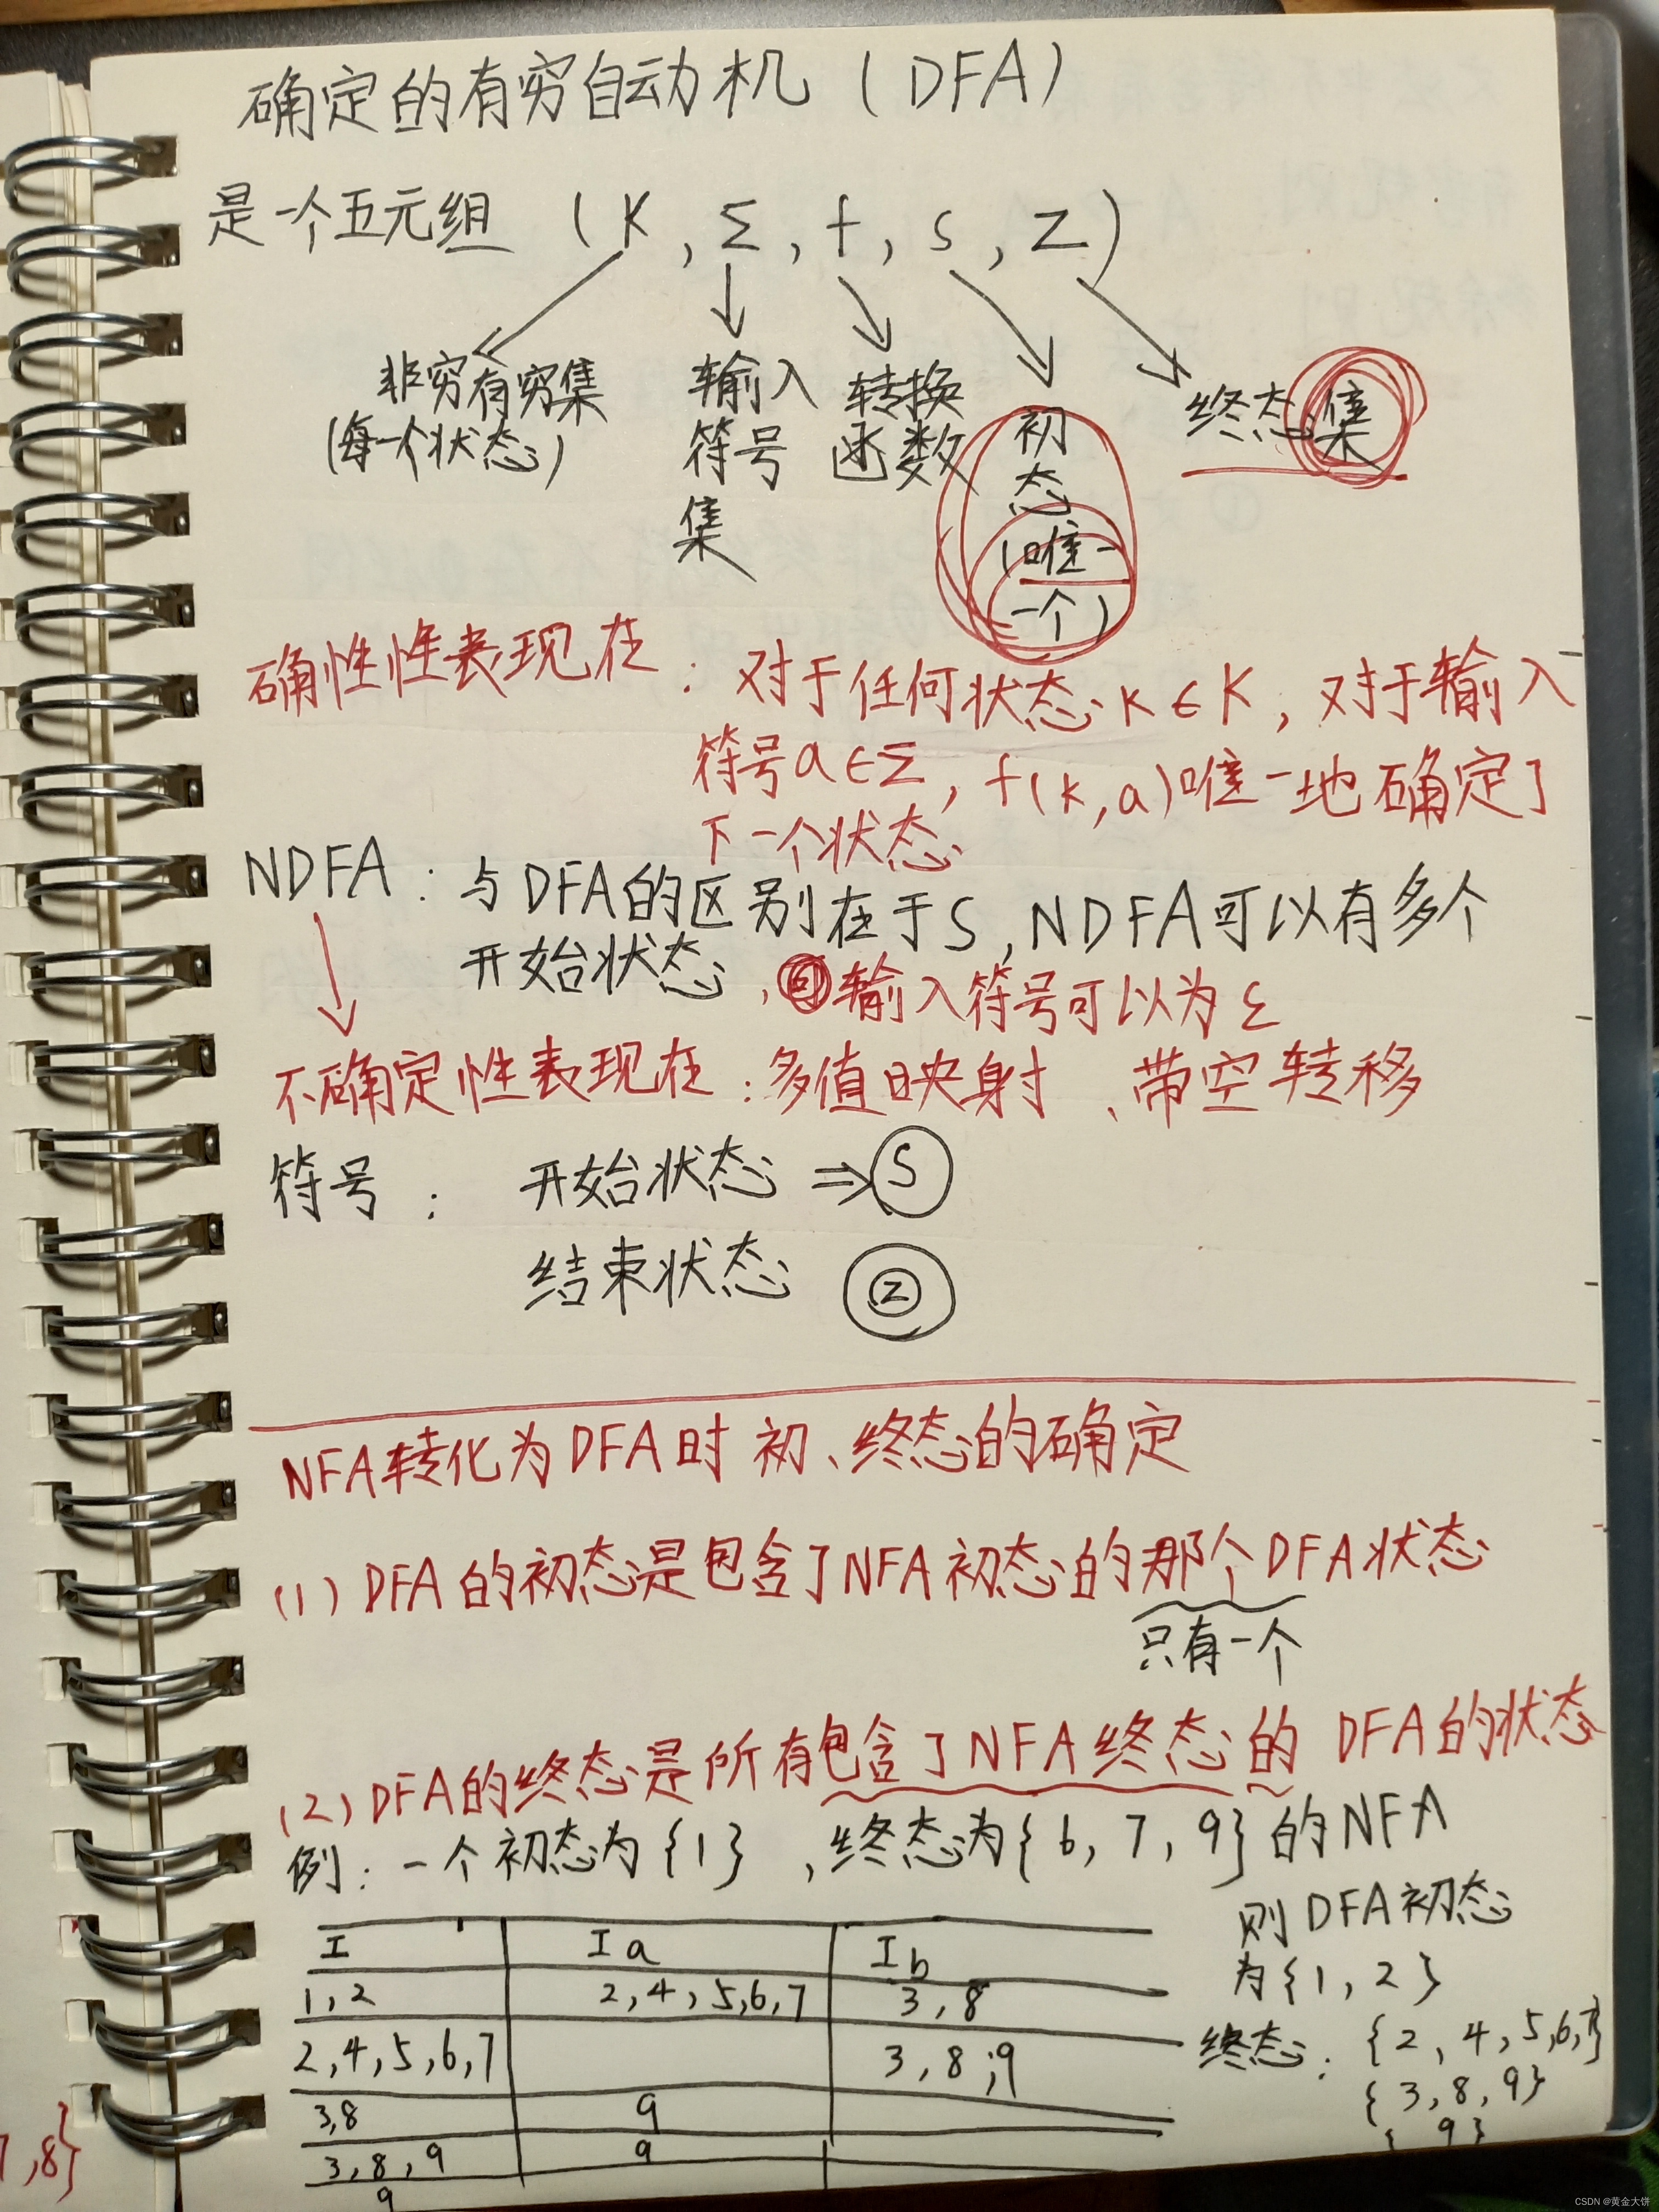 确定的有穷自动机（DFA）
是一个五元组（K，Σ，f，s，Z）
非穷有穷集
（每一个状态）
输入
符号
集
转换
函数
初
态
（唯一
一个）
终态集
确性性表现在：对于任何状态k∈K，对于输入
符号a∈Σ，f(k,a)唯一地确定了
下一个状态
NDFA：与DFA的区别在于S，NDFA可以有多个
开始状态，输入符号可以为ε
不确定性表现在：多值映射、带空转移
符号： 开始状态 ⇒ S
结束状态 Z
NFA转化为DFA时 初、终态的确定
（1）DFA的初态是包含了NFA初态的那个DFA状态
只有一个
（2）DFA的终态是所有包含了NFA终态的 DFA的状态
例：一个初态为{1}，终态为{6，7，9}的NFA
则DFA初态
为{1，2}
终态：{2，4，5，6，7}
{3，8，9}
{9}
I Ia Ib
1，2 2，4，5，6，7 3，8
2，4，5，6，7 3，8，9
3，8 9
3，8，9 9
9
，8}
CSDN @黄金大饼